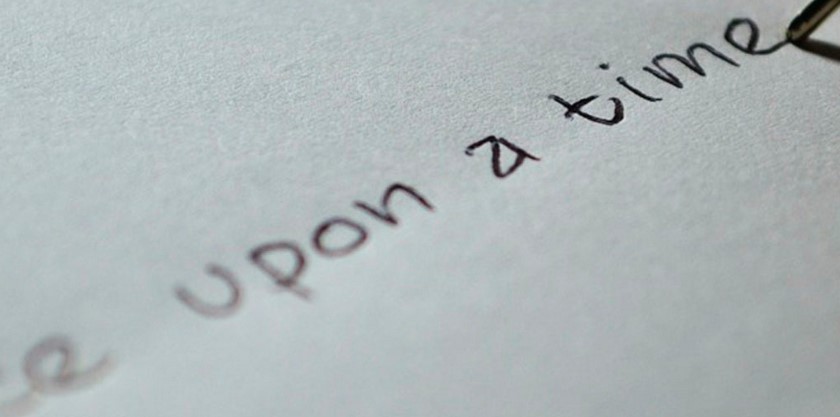 ce upon a time